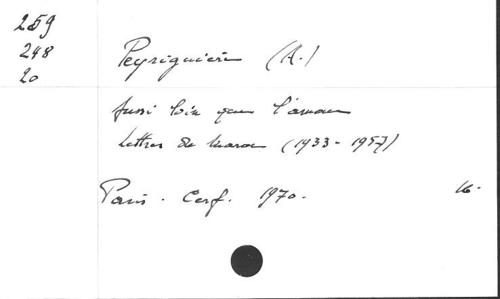 259
248
20
Peyriguère (A.)
Aussi loin que l'amour
Lettres du Maroc (1933-1957)
Paris. Cerf. 1970.
16.